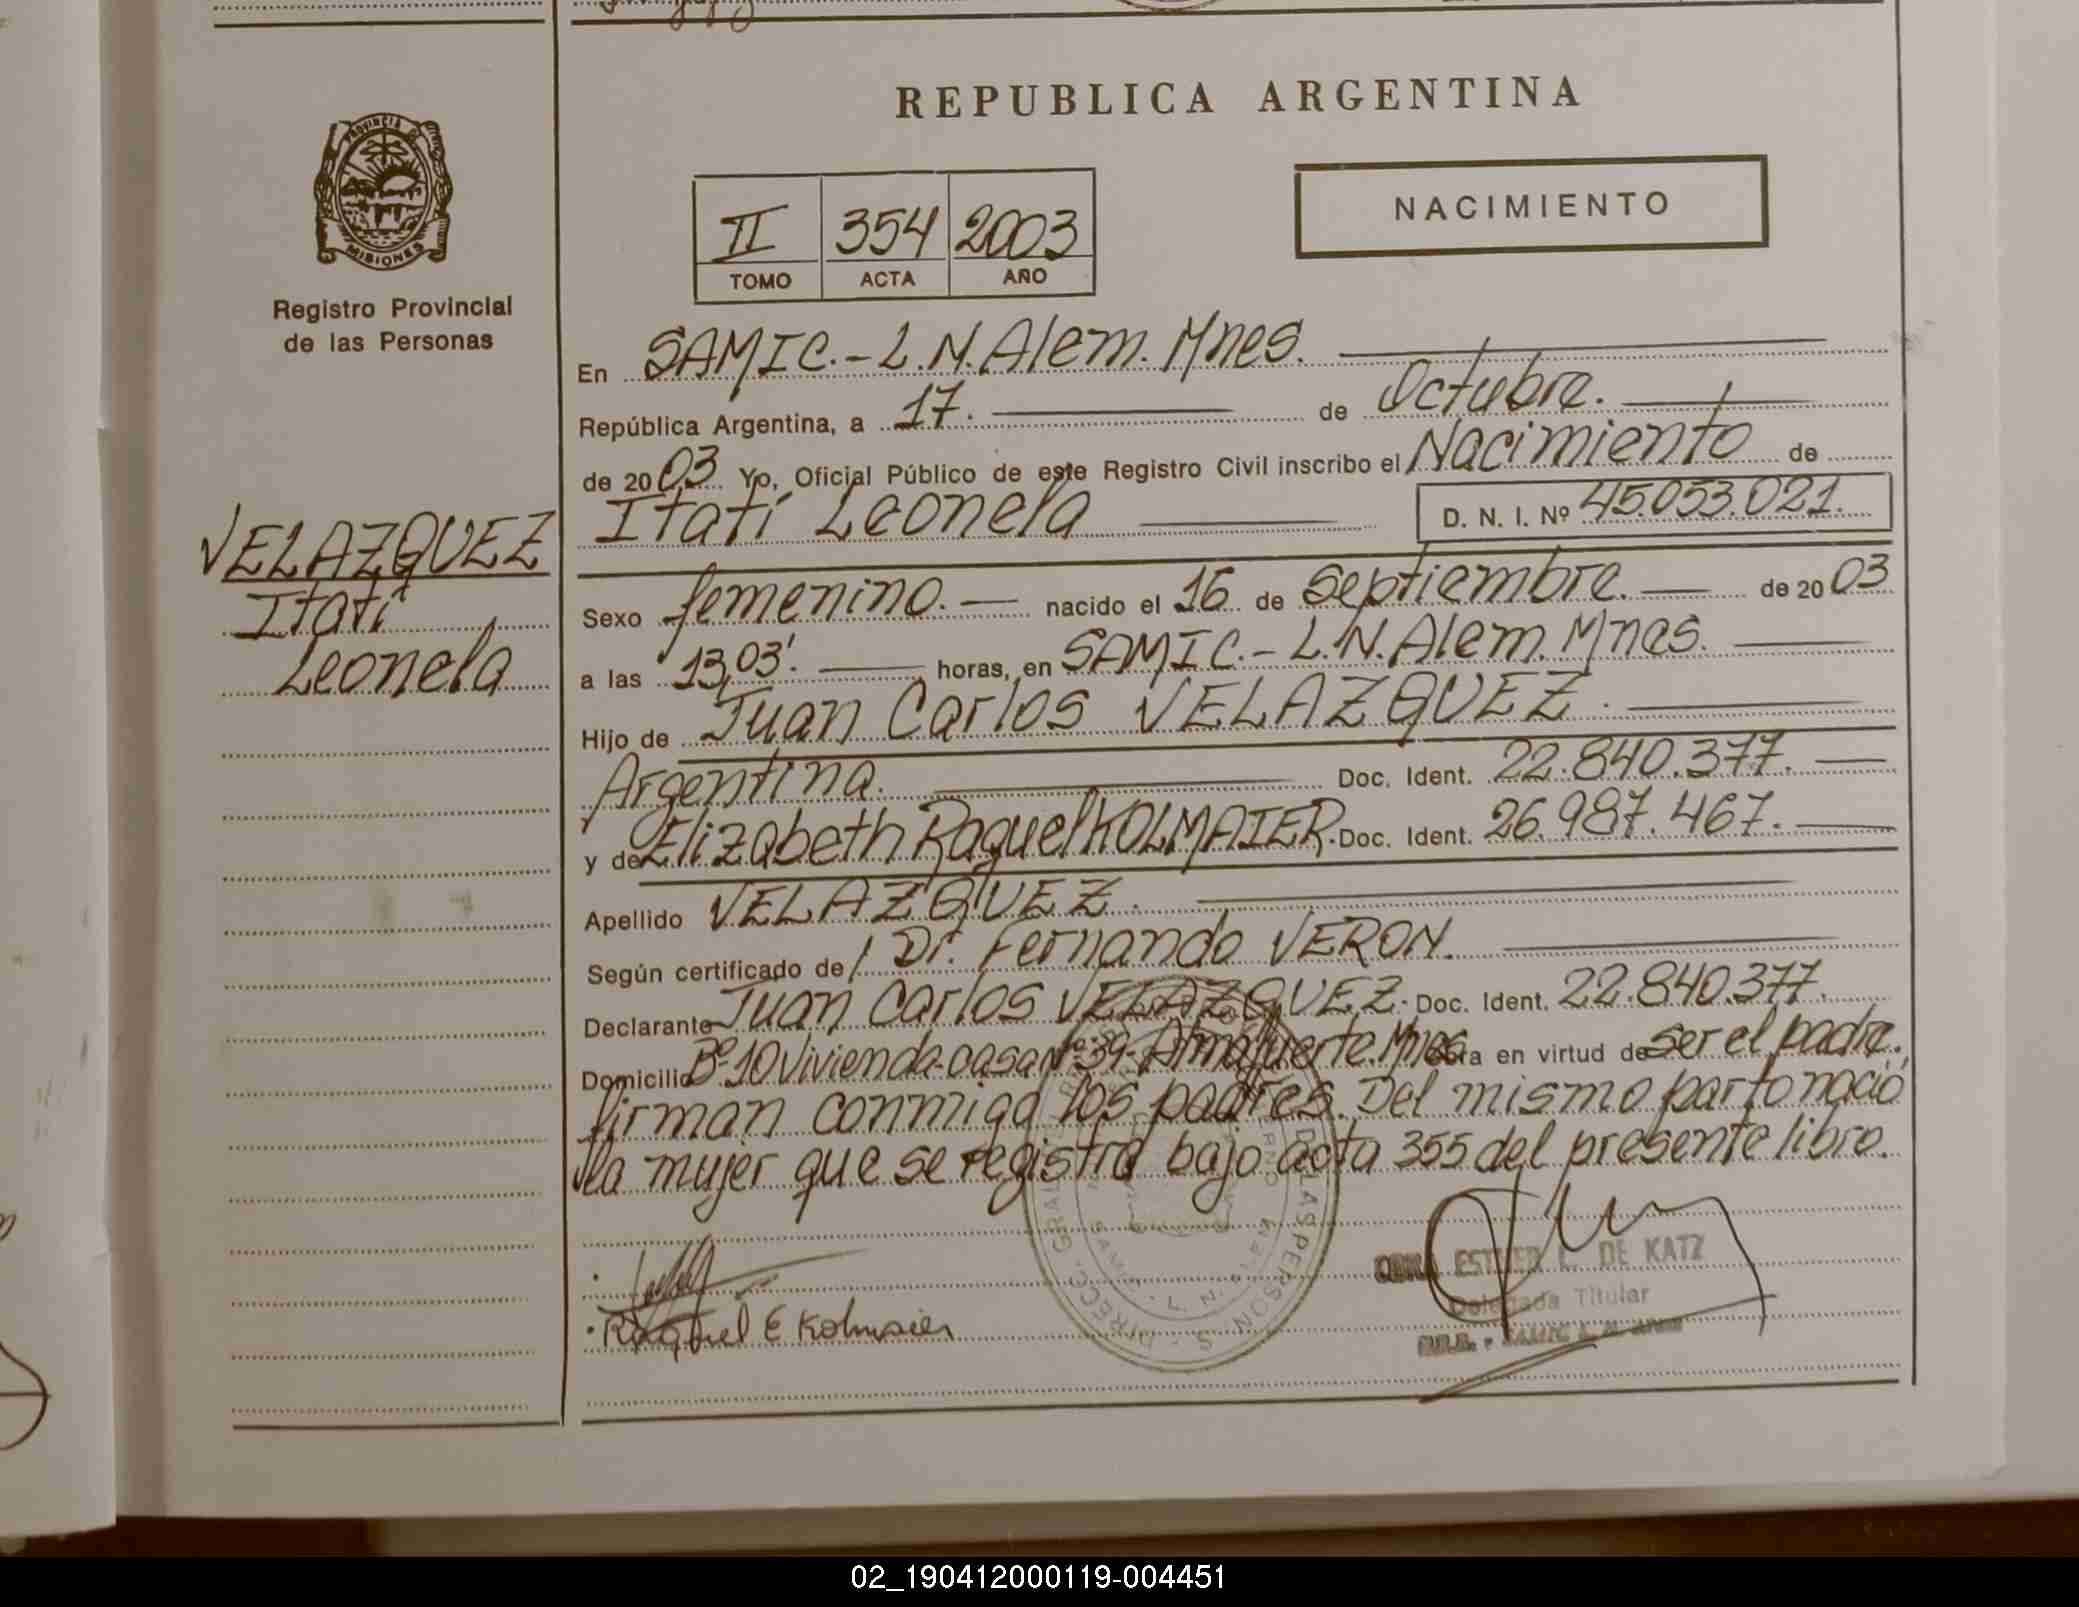 REPUBLICA ARGENTINA
PROVINCIA DE
MISIONES
Registro Provincial
de las Personas
II 354 2003
TOMO ACTA AÑO
NACIMIENTO
VELAZQUEZ
Itatí
Leonela
En SAMIC.-L.N.Alem.Mnes.
República Argentina, a 17. de Octubre.
de 2003 Yo, Oficial Público de este Registro Civil inscribo el Nacimiento de
Itatí Leonela D. N. I. Nº 45.053.021.
Sexo femenino. nacido el 16 de Septiembre. de 2003
a las 13,03'. horas, en SAMIC.-L.N.Alem.Mnes.
Hijo de Juan Carlos VELAZQUEZ.
Argentina. Doc. Ident. 22.840.377.
y de Elizabeth Raquel KOLMAIER. Doc. Ident. 26.987.467.
Apellido VELAZQUEZ.
Según certificado de Dr. Fernando VERON.
Declarante Juan Carlos VELAZQUEZ. Doc. Ident. 22.840.377.
Domicilio Bº 10 Vivienda-casa Nº 39-Almafuerte.Mnes. en virtud de ser el padre.
firman conmigo los padres. Del mismo parto nació
la mujer que se registra bajo acta 355 del presente libro.
ESTHER L. DE KATZ
Delegada Titular
Raquel E Kolmaier
02_190412000119-004451